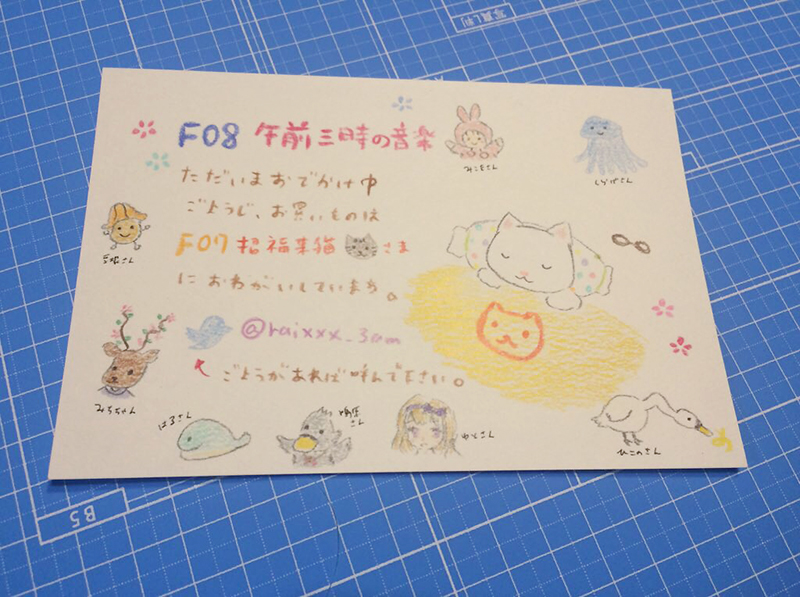 F08 午前三時の音楽
ただいまおでかけ中
ごようじ、お買いものは
F07 招福来猫 さま
におねがいしています。
@raixxx_3am
ごようがあれば呼んで下さい。
みことさん
くらげさん
みちちゃん
はるさん
ひこのさん
B5